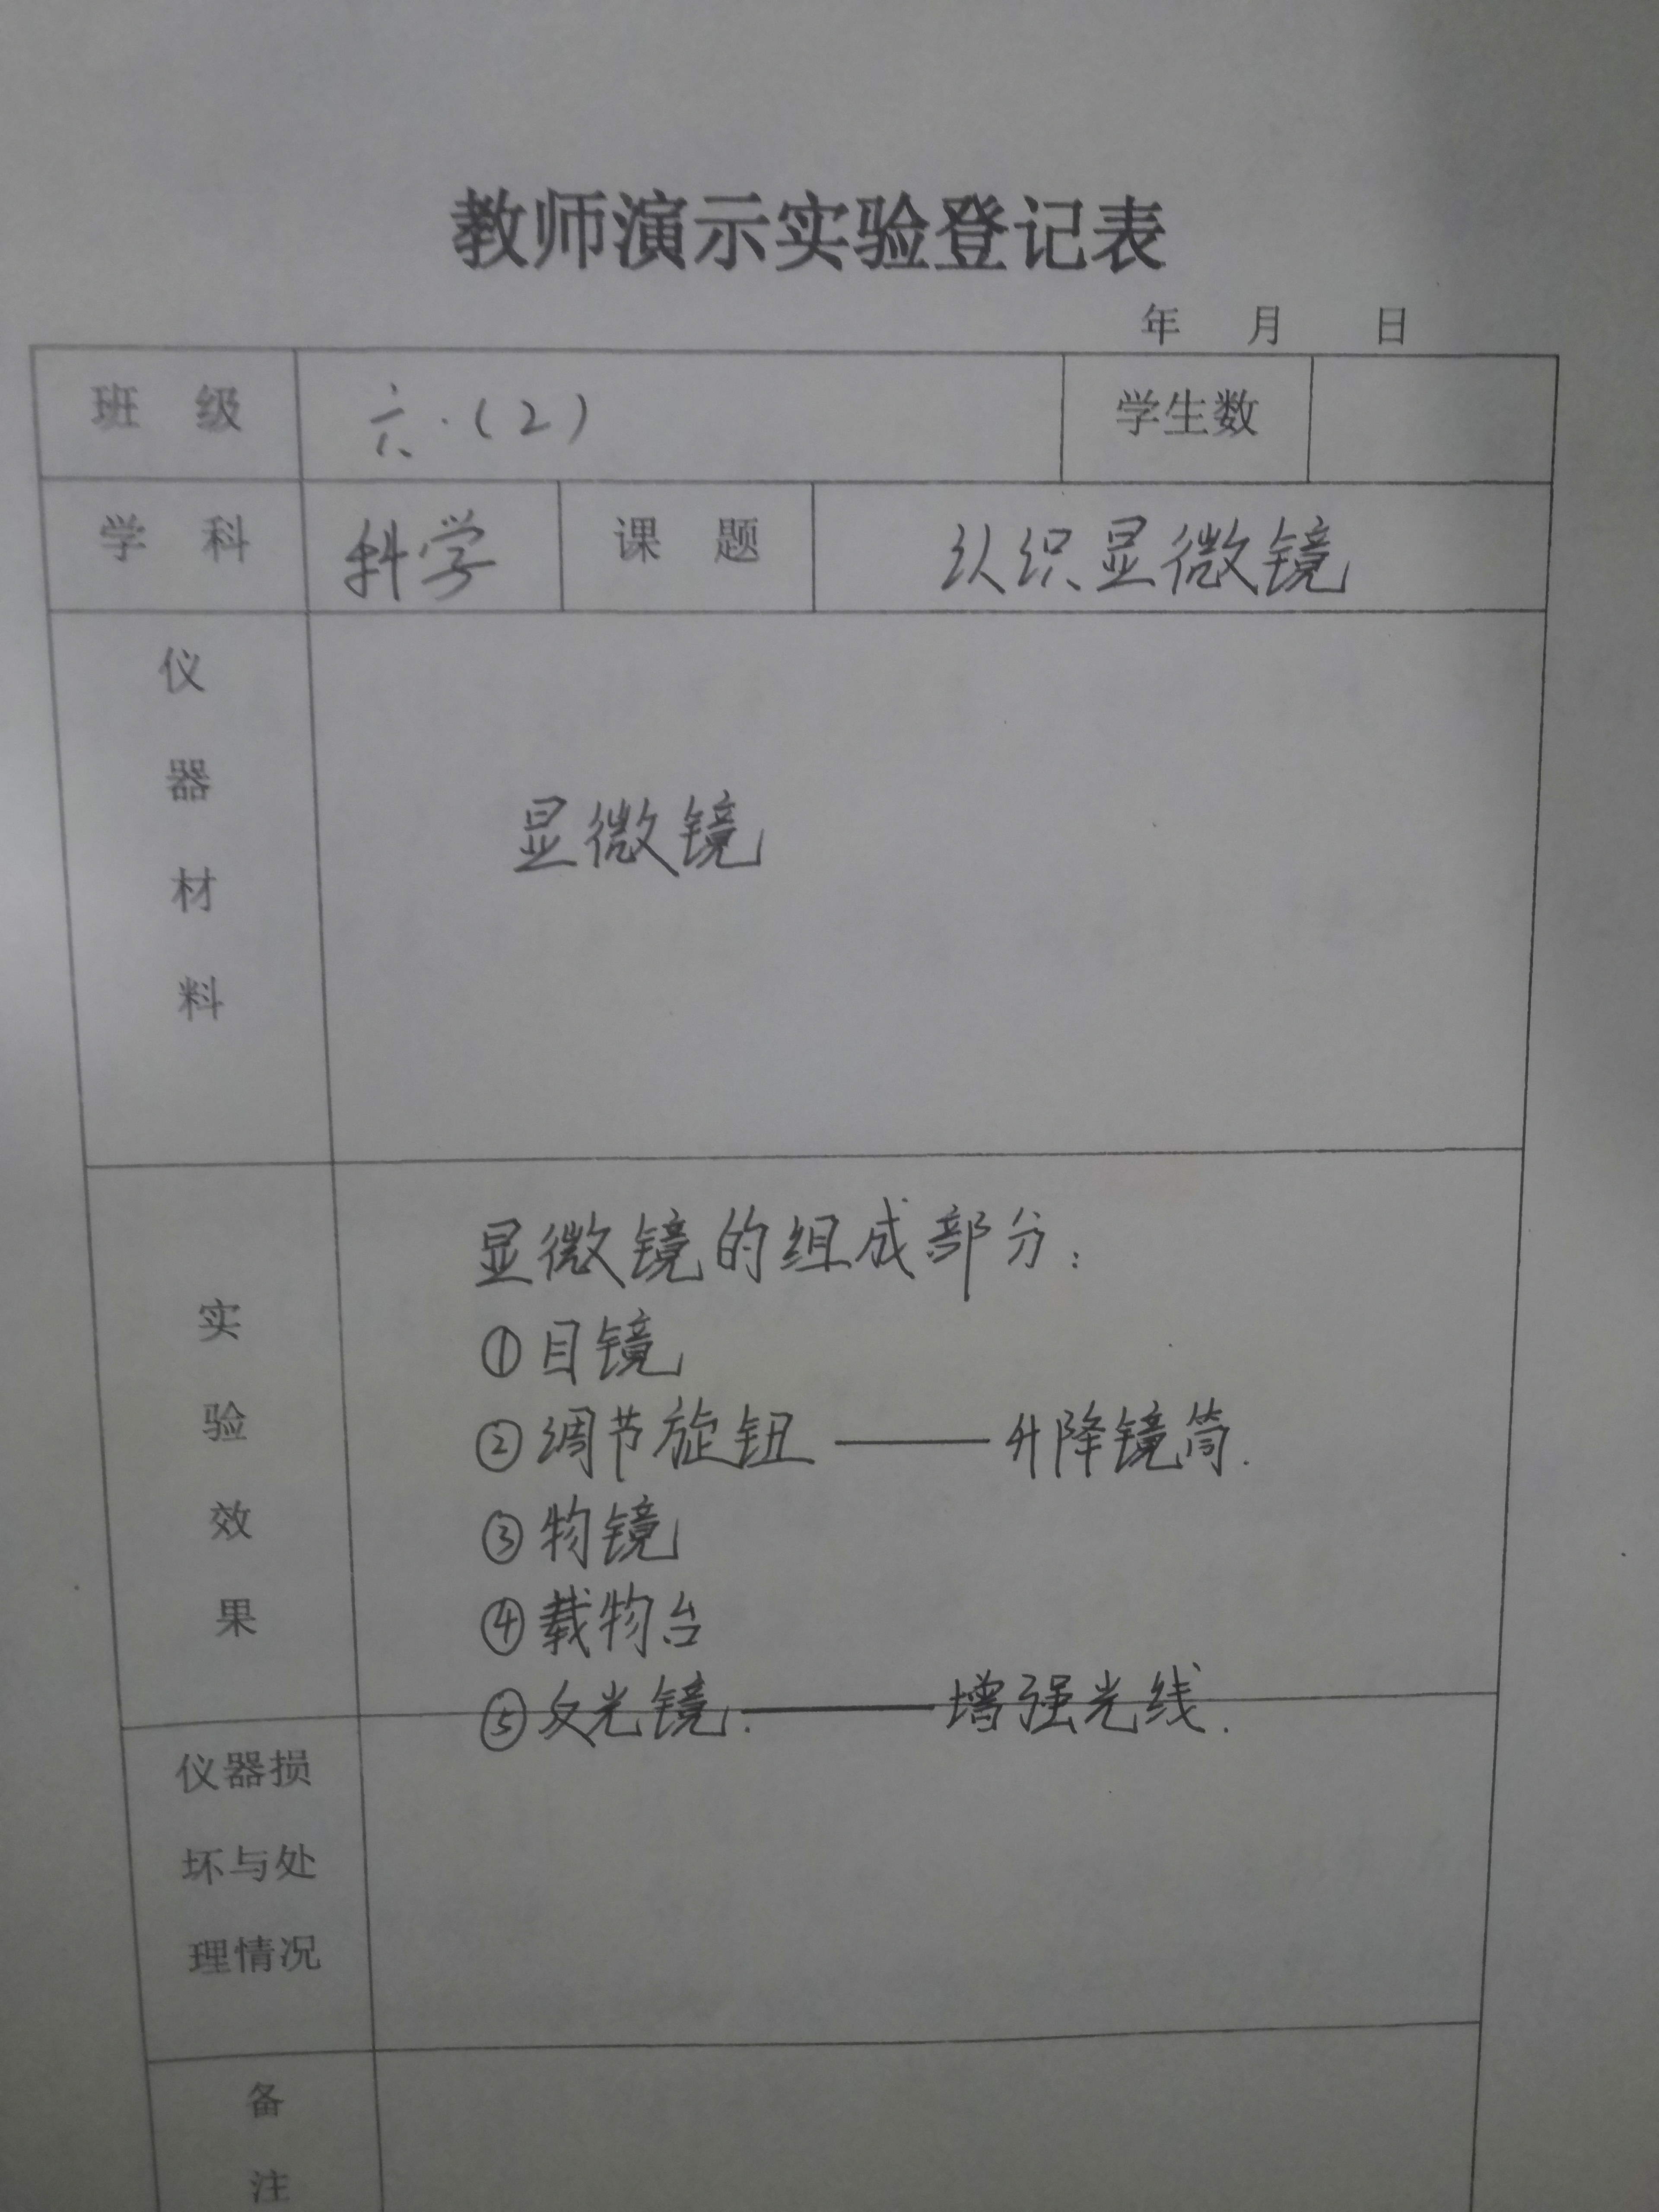 教师演示实验登记表
年 月 日
班 级 六.(2) 学生数
学 科 科学 课 题 认识显微镜
仪器材料 显微镜
实验效果
显微镜的组成部分:
①目镜
②调节旋钮——升降镜筒.
③物镜
④载物台
⑤反光镜.——增强光线.
仪器损
坏与处
理情况
备
注